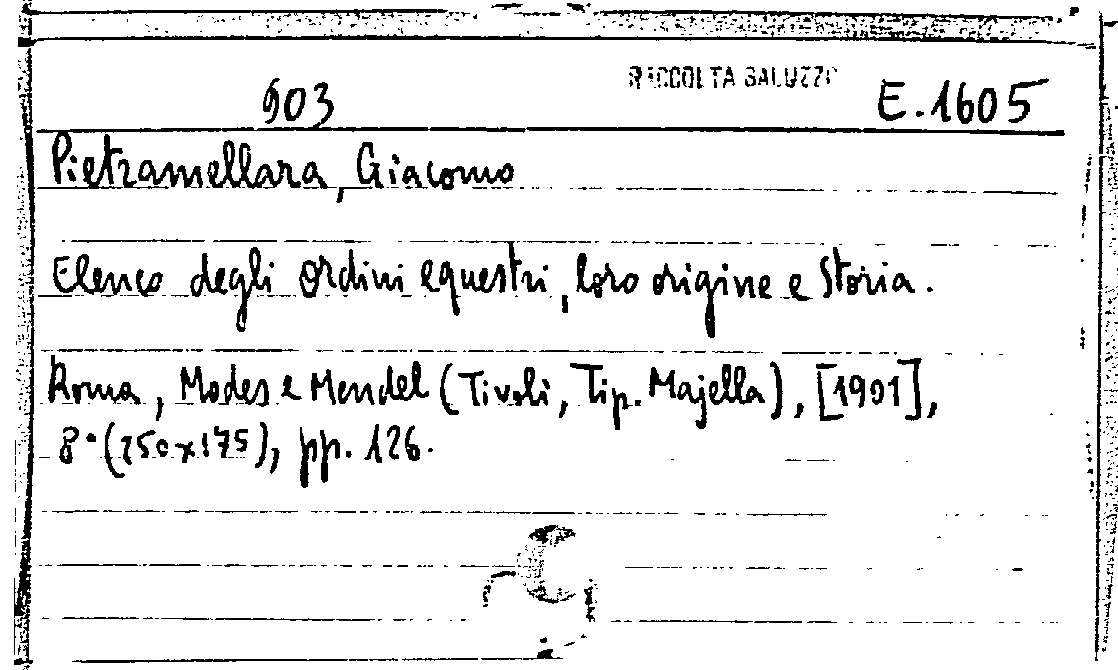 903 RACCOLTA SALUZZO E.1605
Pietramellara, Giacomo
Elenco degli ordini equestri, loro origine e Storia.
Roma, Modes e Mendel (Tivoli, Tip. Majella), [1901],
8° (250x175), pp. 126.